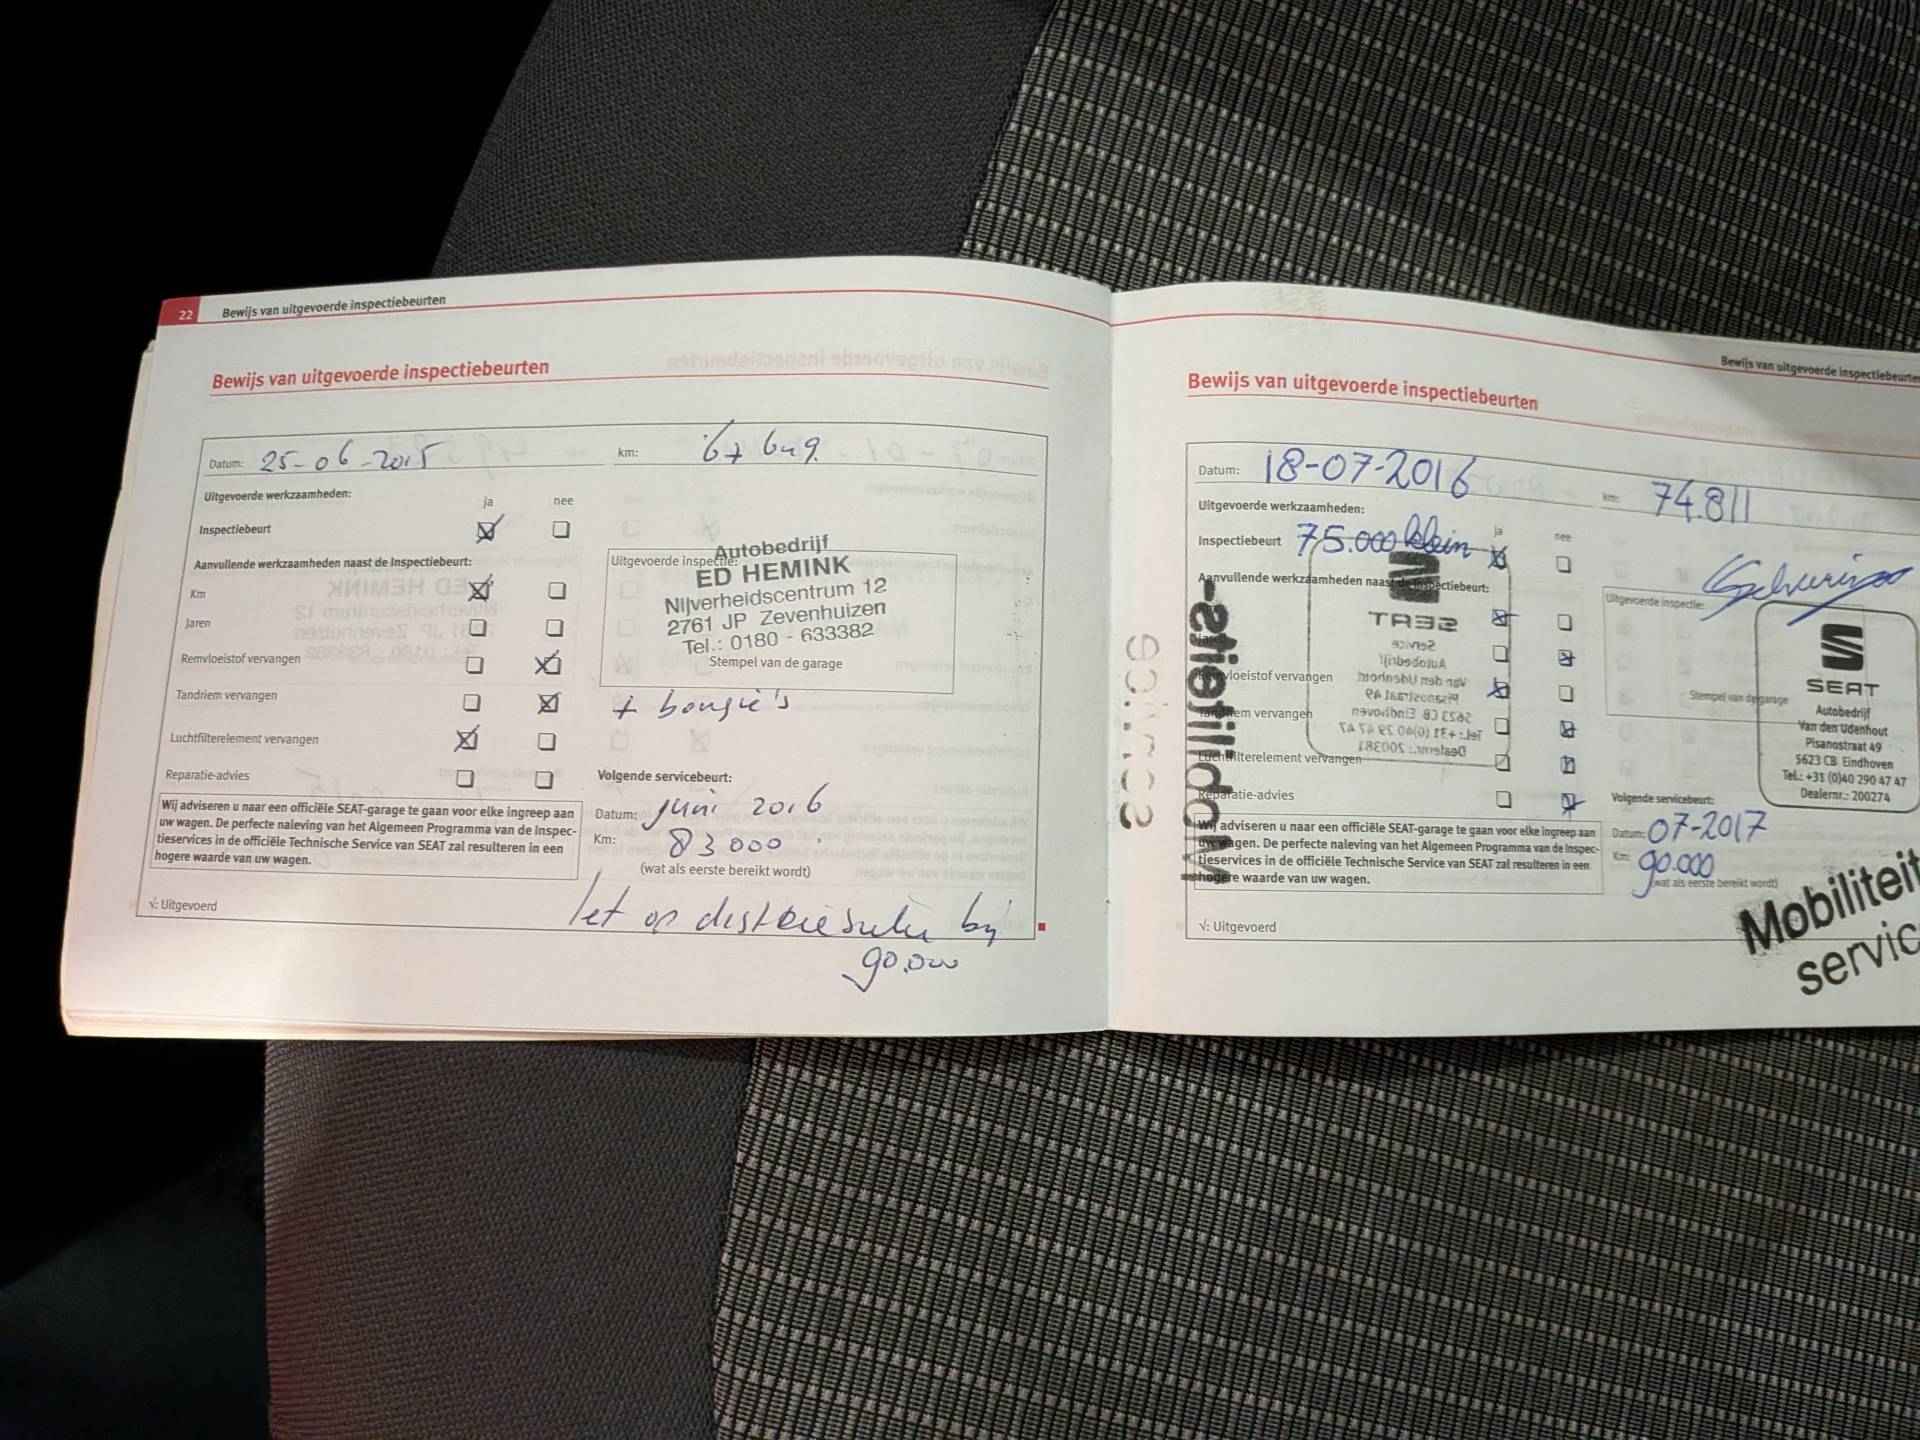 22 Bewijs van uitgevoerde inspectiebeurten
Bewijs van uitgevoerde inspectiebeurten
Datum: 25-06-2015 km:
Uitgevoerde werkzaamheden:
ja nee
Inspectiebeurt
Aanvullende werkzaamheden naast de Inspectiebeurt:
Km
Jaren
Remvloeistof vervangen
Tandriem vervangen
Luchtfilterelement vervangen
Reparatie-advies
Uitgevoerde inspectie:
Autobedrijf
ED HEMINK
Nijverheidscentrum 12
2761 JP Zevenhuizen
Tel.: 0180 - 633382
Stempel van de garage
+ bougie's
Volgende servicebeurt:
Datum: juni 2016
Km: 83000
(wat als eerste bereikt wordt)
Wij adviseren u naar een officiële SEAT-garage te gaan voor elke ingreep aan
uw wagen. De perfecte naleving van het Algemeen Programma van de Inspec-
tieservices in de officiële Technische Service van SEAT zal resulteren in een
hogere waarde van uw wagen.
√: Uitgevoerd
let op distributie bij
90.000
Bewijs van uitgevoerde inspectiebeurten
Bewijs van uitgevoerde inspectiebeurten
Datum: 18-07-2016 km: 74.811
Uitgevoerde werkzaamheden:
ja nee
Inspectiebeurt 75.000 klein
Aanvullende werkzaamheden naast de Inspectiebeurt:
Remvloeistof vervangen
Tandriem vervangen
Luchtfilterelement vervangen
Reparatie-advies
Uitgevoerde inspectie:
Stempel van de garage
SEAT
Autobedrijf
Van den Udenhout
Pisanostraat 49
5623 CB Eindhoven
Tel.: +31 (0)40 290 47 47
Dealernr.: 200274
Volgende servicebeurt:
Datum: 07-2017
Km: 90.000
(wat als eerste bereikt wordt)
Wij adviseren u naar een officiële SEAT-garage te gaan voor elke ingreep aan
uw wagen. De perfecte naleving van het Algemeen Programma van de Inspec-
tieservices in de officiële Technische Service van SEAT zal resulteren in een
hogere waarde van uw wagen.
√: Uitgevoerd
Mobiliteit
servic